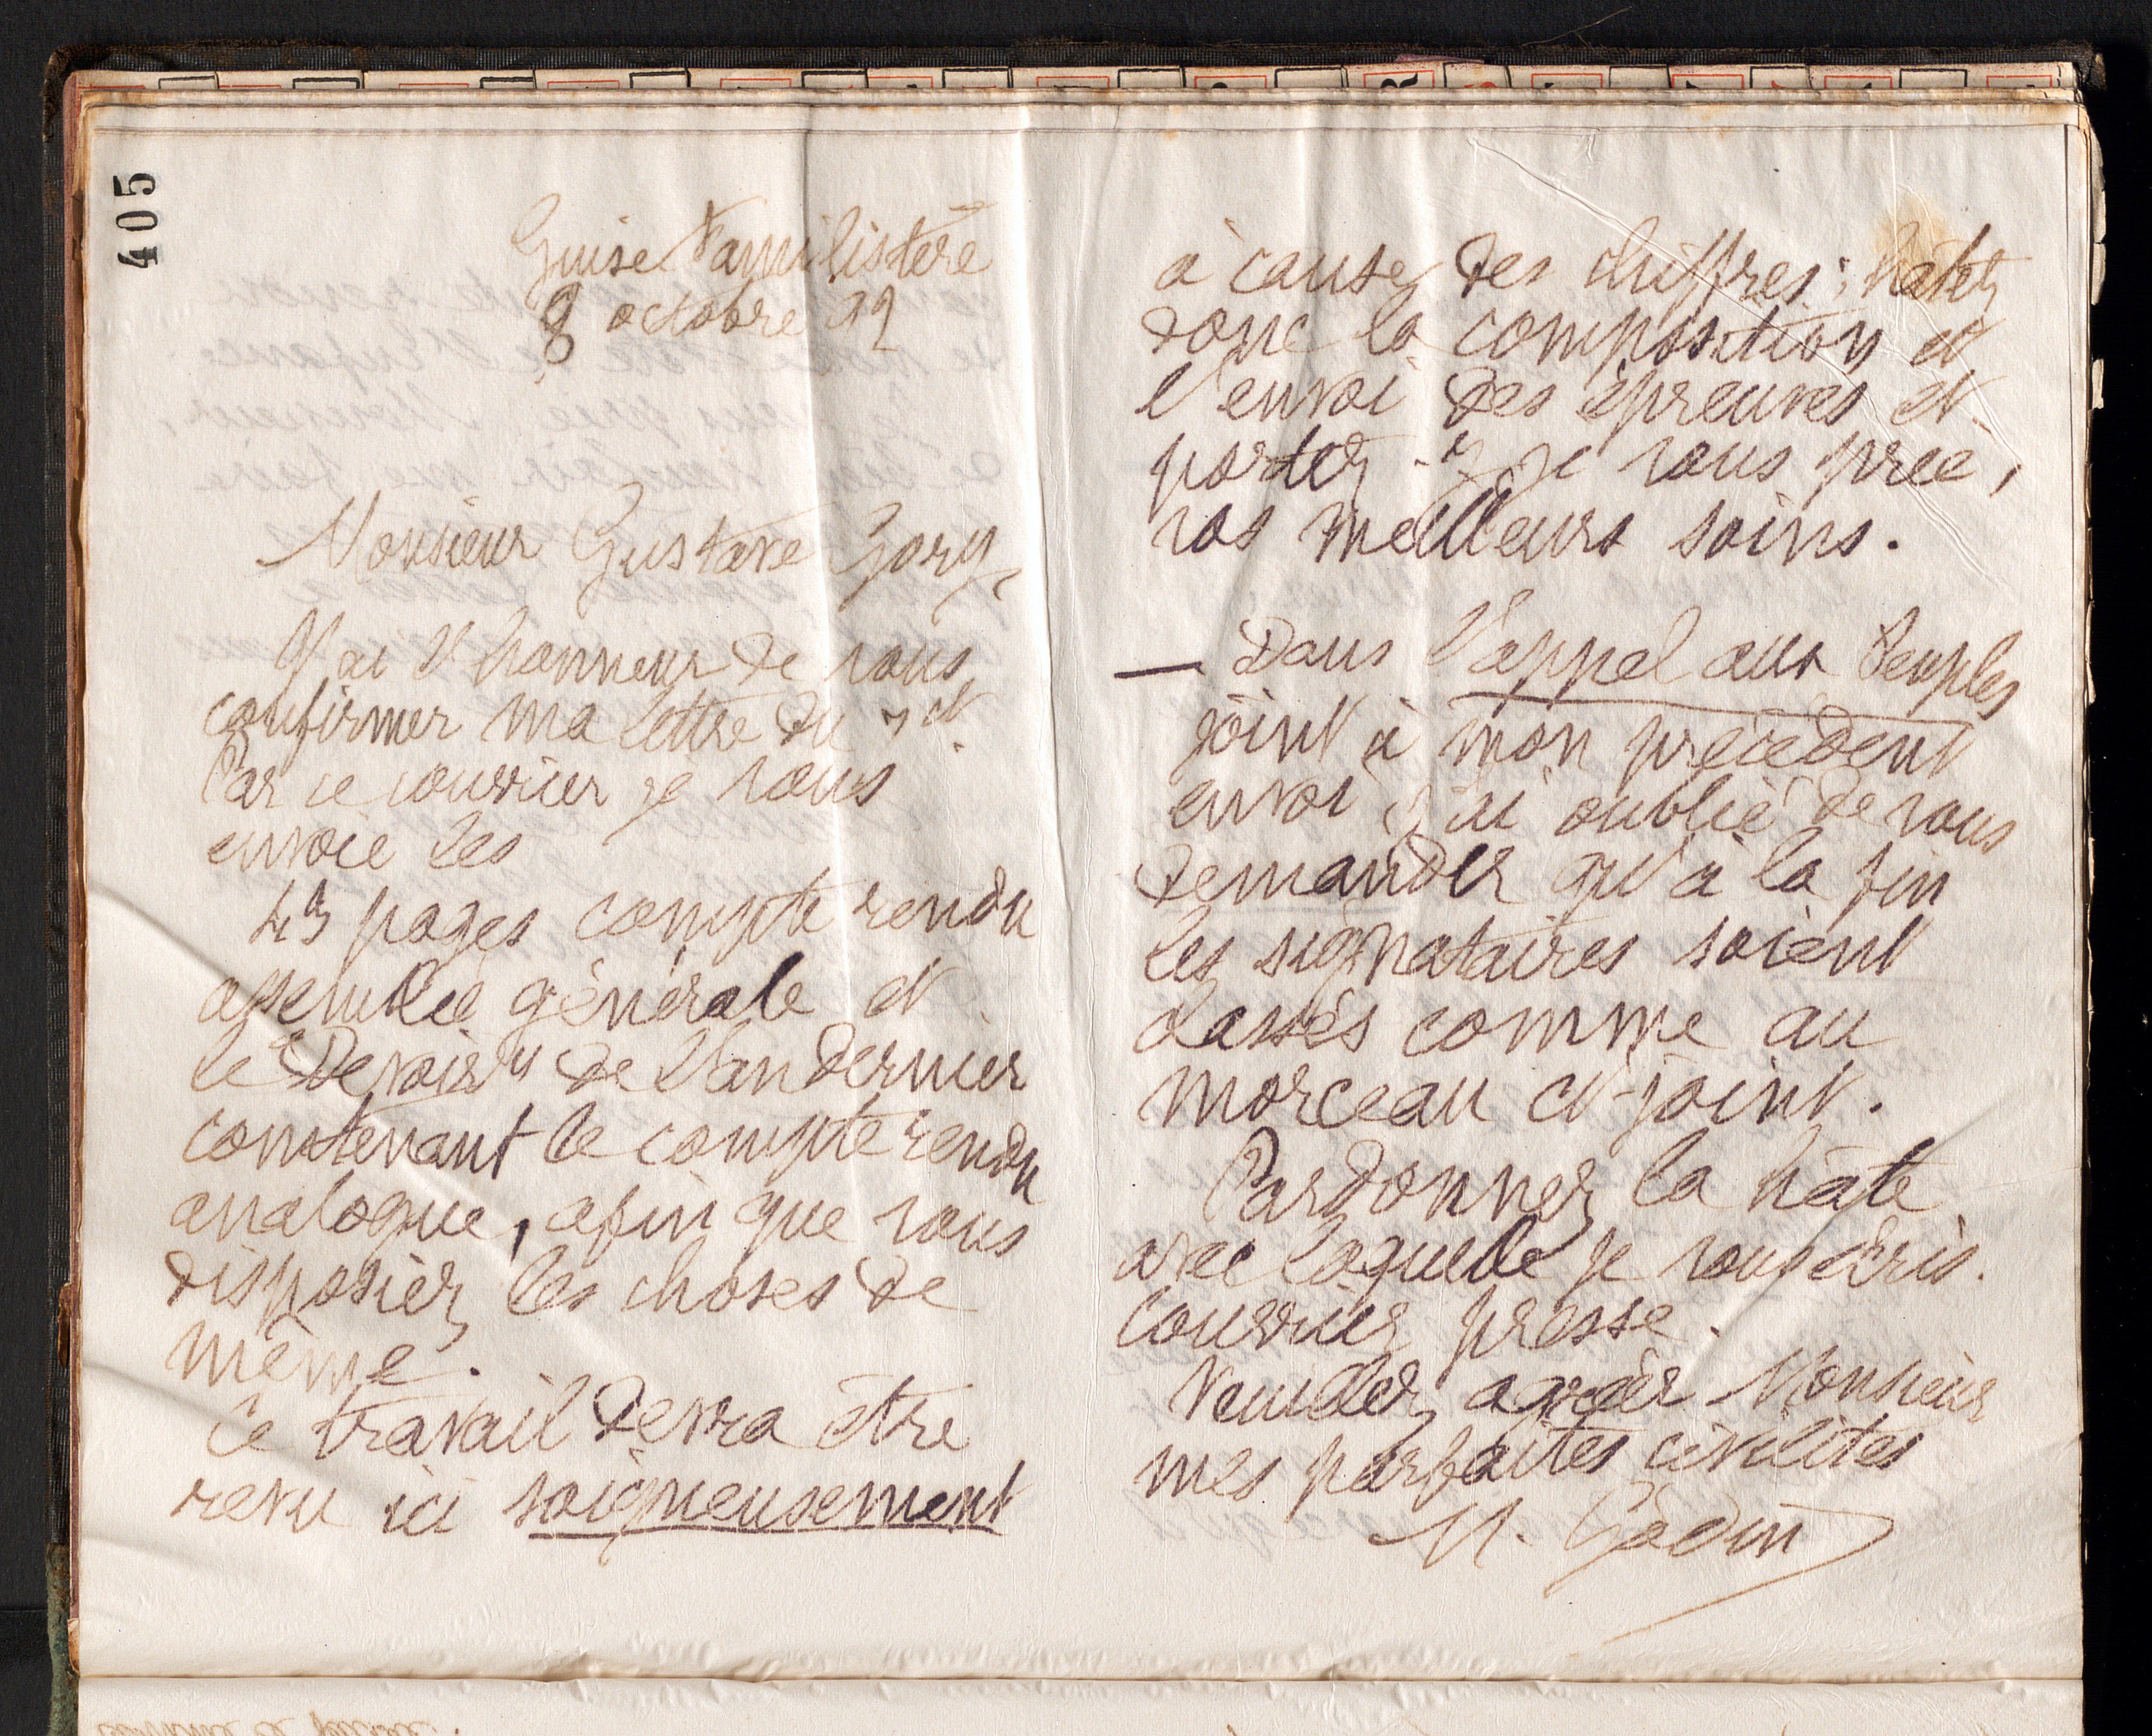 405
Guise Familistère
8 octobre 92
Monsieur Gustave Gory,
J'ai l'honneur de vous
confirmer ma lettre du 7 ct.
Par ce courrier je vous
envoie les
43 pages compte rendu
assemblée générale et
le "Devoir" de l'an dernier
contenant le compte rendu
analogue, afin que vous
disposiez les choses de
même.
Ce travail devra être
revu ici soigneusement
à cause des chiffres ; hâtez
donc la composition et
l'envoi des épreuves et
portez-y, je vous prie,
vos meilleurs soins.
— Dans l'appel aux Peuples
joint à mon précédent
envoi j'ai oublié de vous
demander qu'à la fin
les signataires soient
classés comme au
morceau ci-joint.
Pardonnez la hâte
avec laquelle je vous écris.
Courrier presse.
Veuillez agréer Monsieur
mes parfaites civilités
M. Godin